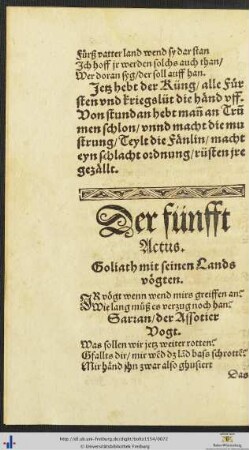 Fürß vatter land wend sy dar stan
Jch hoff jr werden solchs auch than/
Wer doran syg/der soll auff han.
Jetz hebt der Küng/ alle Für
sten vnd kriegslüt die händ vff.
Von stundan hebt man an Trũ
men schlon/ vnnd macht die mu
strung/ Teylt die Fänlin/ macht
eyn schlacht ordnung/ rüsten jre
gezällt.
Der fünfft
Actus.
Goliath mit seinen Lands
vögten.
IR vögt wenn wend mirs greiffen an?
Wie lang müß es verzug noch han?
Sarran/ der Assorier
Vogt.
Was sollen wir jetz weiter rotten?
Gfallts dir/ mir wẽd dz Lãd baß schrottẽ.
Mir händ jhn zwar also ghusiert
Das
http://dl.ub.uni-freiburg.de/diglit/boltz1554/0072
© Universitätsbibliothek Freiburg